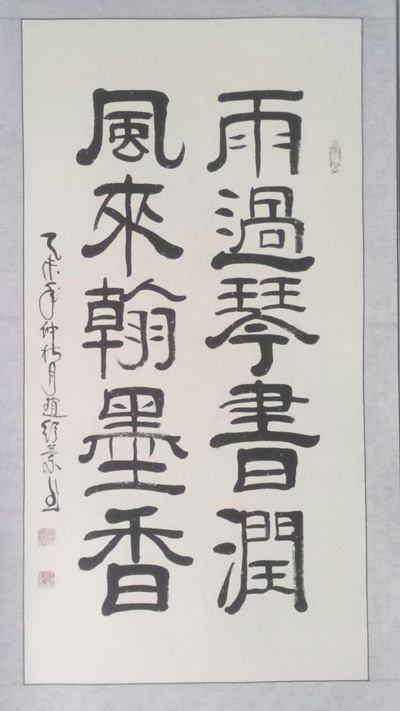 雨過琴書潤
風來翰墨香
乙未年仲秋月趙